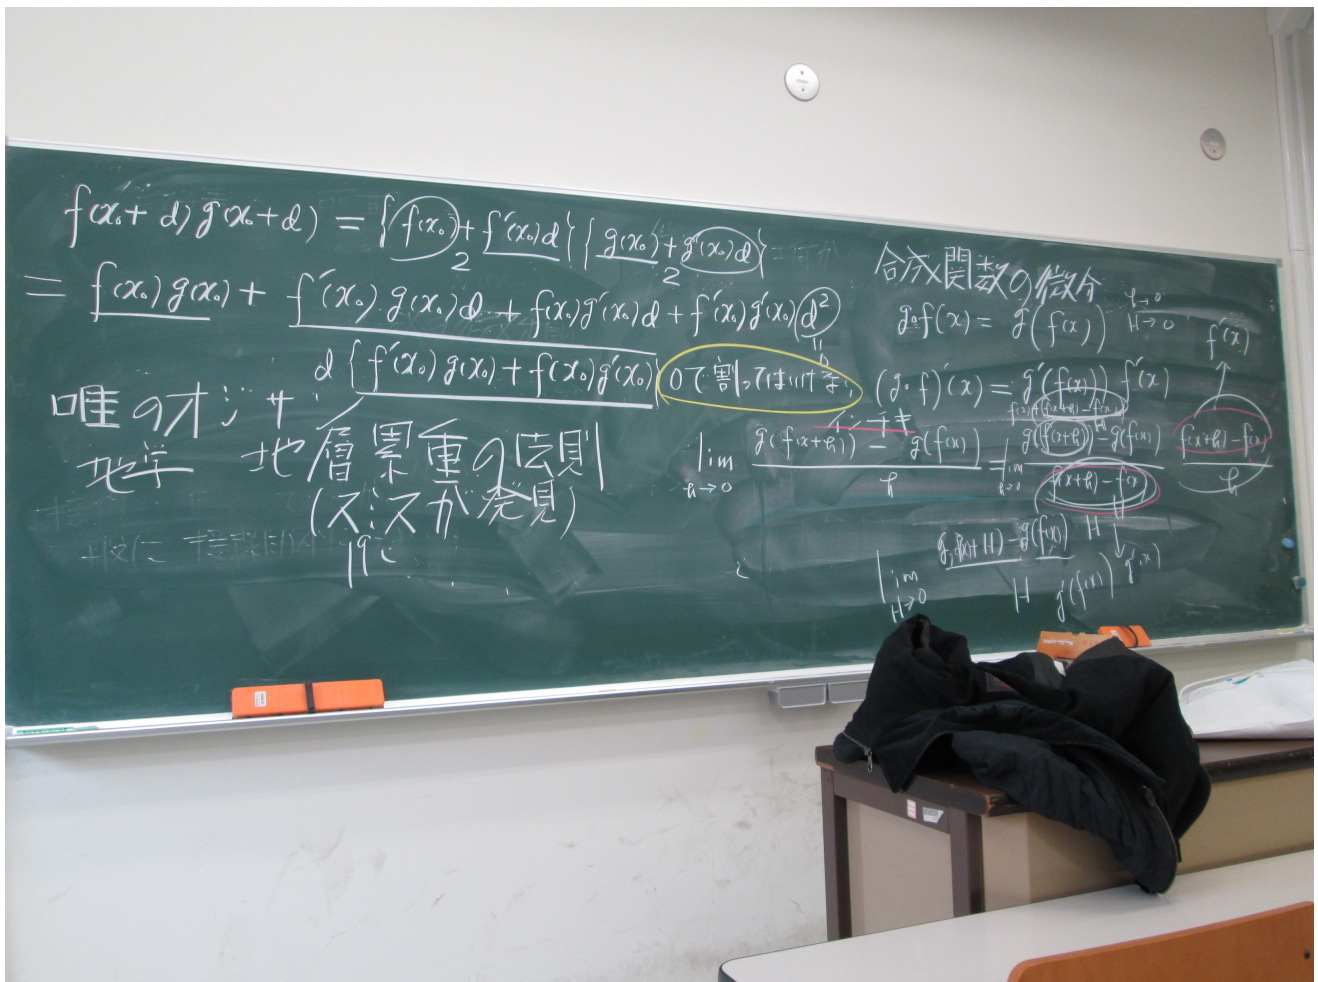 f(x₀+d)g(x₀+d) = {f(x₀)+f'(x₀)d}{g(x₀)+g'(x₀)d}
2 2
= f(x₀)g(x₀)+ f'(x₀)g(x₀)d + f(x₀)g'(x₀)d + f'(x₀)g'(x₀)d²
0
d{f'(x₀)g(x₀)+f(x₀)g'(x₀)}
0で割ってはいけない
唯のオジサン
地学 地層累重の法則
(スミスが発見)
19c
合成関数の微分
g∘f(x) = g(f(x))
h→0
H→0
f'(x)
(g∘f)'(x) = g'(f(x)) f'(x)
インチキ
f(x)+f(x+h)-f(x)
lim h→0 g(f(x+h)) - g(f(x)) / h = lim h→0 g(f(x+h))-g(f(x)) / f(x+h)-f(x) f(x+h)-f(x) / h
H
lim H→0 g(f(x)+H)-g(f(x)) / H
g'(f(x)) g'(x)